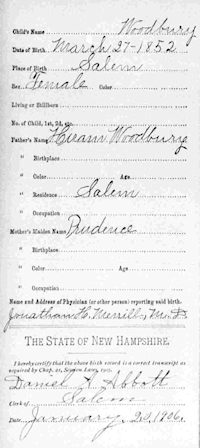 Child's Name Woodbury
Date of Birth March 27-1852
Place of Birth Salem
Sex Female Color
Living or Stillborn
No. of Child, 1st, 2d, etc.
Father's Name Hiram Woodbury
" Birthplace
" Color Age
" Residence Salem
" Occupation
Mother's Maiden Name Prudence
" Birthplace
" Color Age
" Occupation
Name and Address of Physician (or other person) reporting said birth.
Jonathan H. Merrill, M.D.
THE STATE OF NEW HAMPSHIRE.
I hereby certify that the above birth record is a correct transcript as
required by Chap. 21, Session Laws, 1905.
Daniel A. Abbott
Clerk of Salem
Date January 1906.